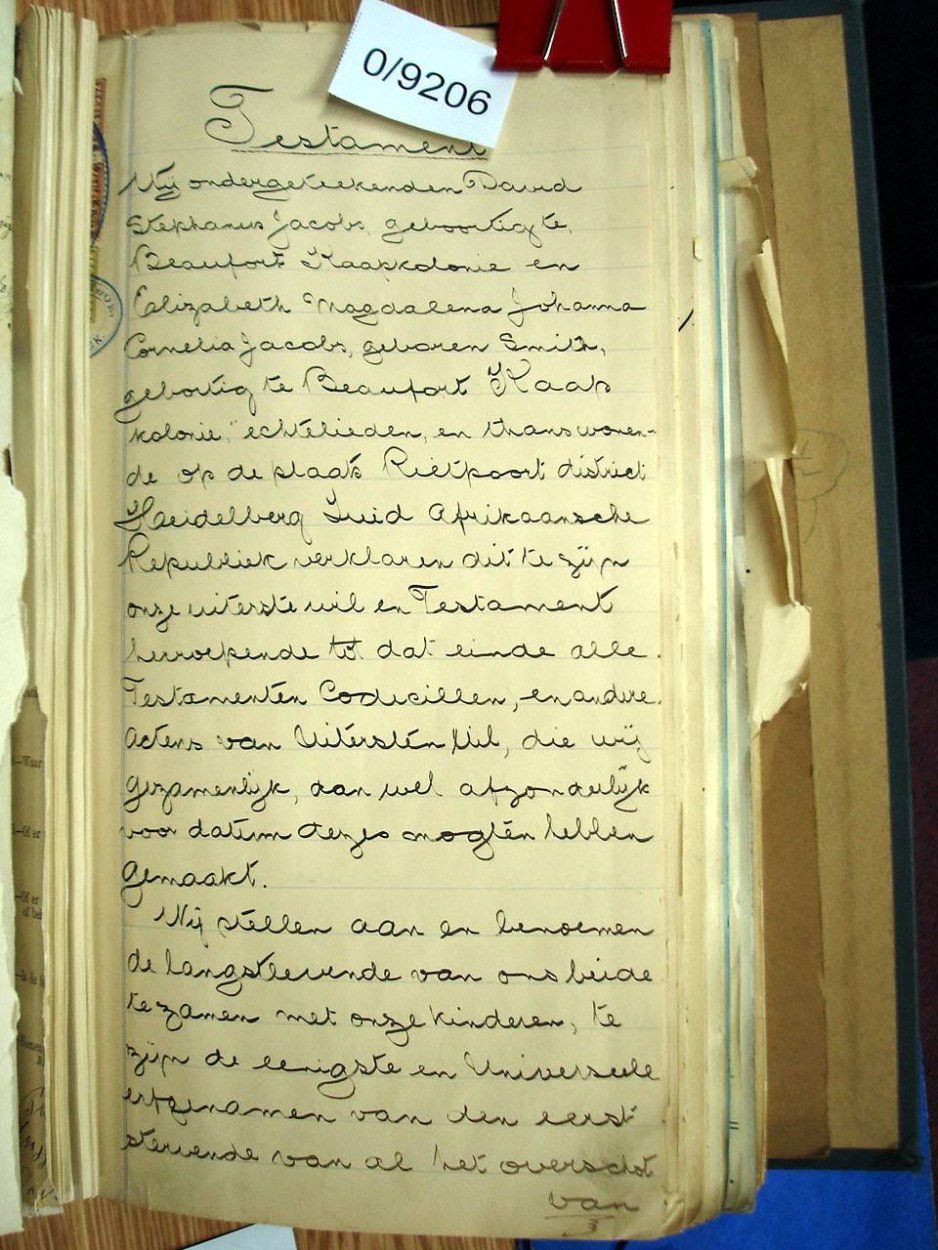 0/9206
Testament
Wij ondergeteekenden David
Stephanus Jacobs, geboortig te,
Beaufort Kaapkolonie en
Elizabeth Magdalena Johanna
Cornelia Jacobs, geboren Smith,
gebortig te Beaufort Kaap
kolonie," echtelieden, en thans wonen-
de op de plaats Rietpoort district
Heidelberg Zuid Afrikaansche
Republiek verklaren dit te zijn
onze uiterste wil en Testament
herroepende tot dat einde alle
Testamenten Codicillen, en andere
Actens van Uitersten Wil, die wij
gezamenlijk, dan wel afzonderlijk
voor datum dezes mogten hebben
gemaakt.
Wij stellen aan en benoemen
de langstlevende van ons beide
te zamen met onze kinderen, te
zijn de eenigste en Universeele
erfgenamen van den eerst
stervende van al het overschot
van